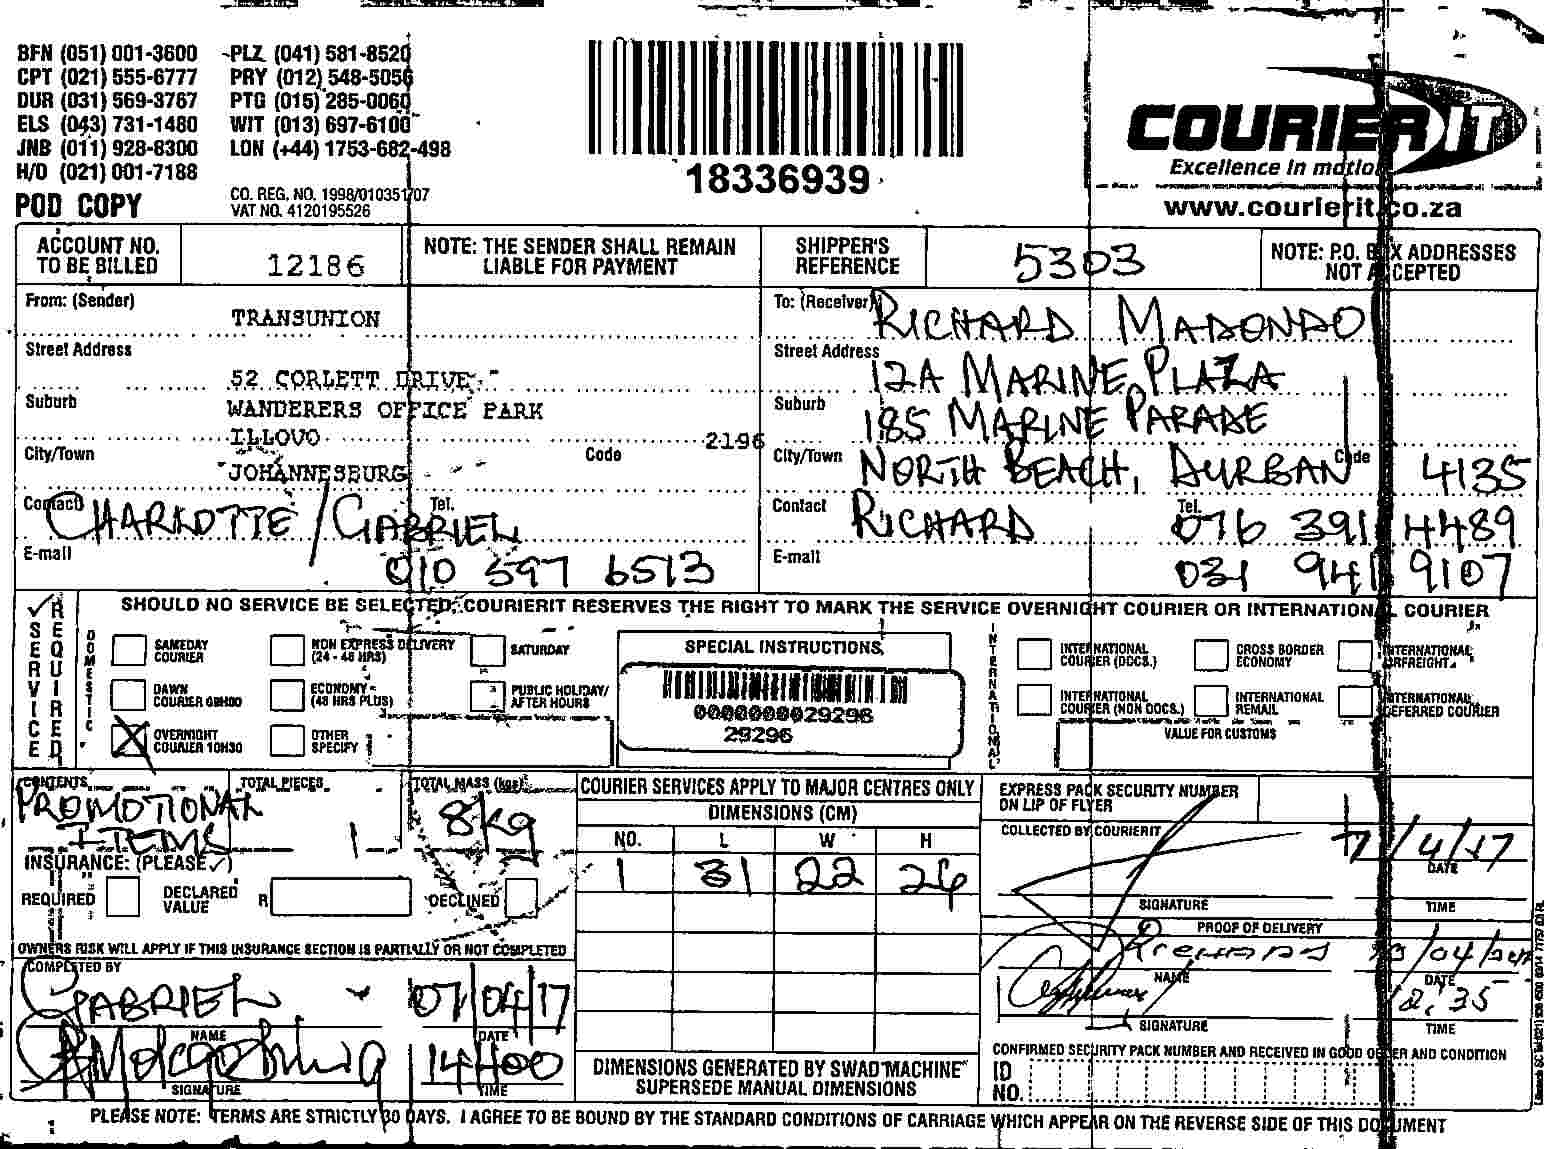 BFN (051) 001-3600 PLZ (041) 581-8520
CPT (021) 555-6777 PRY (012) 548-5056
DUR (031) 569-3767 PTG (015) 285-0060
ELS (043) 731-1480 WIT (013) 697-6100
JNB (011) 928-8300 LON (+44) 1753-682-498
H/O (021) 001-7188
POD COPY
CO. REG. NO. 1998/010351/07
VAT NO. 4120195526
18336939
COURIER IT
Excellence in motion
www.courierit.co.za
ACCOUNT NO. TO BE BILLED 12186
NOTE: THE SENDER SHALL REMAIN LIABLE FOR PAYMENT
SHIPPER'S REFERENCE 5303
NOTE: P.O. BOX ADDRESSES NOT ACCEPTED
From: (Sender) TRANSUNION
Street Address
52 CORLETT DRIVE
Suburb WANDERERS OFFICE PARK
ILLOVO 2196
City/Town Code
JOHANNESBURG
Contact CHARLOTTE / GABRIEL Tel.
E-mail 010 597 6513
To: (Receiver) RICHARD MADONDO
Street Address 12A MARINE PLAZA
Suburb 185 MARINE PARADE
City/Town NORTH BEACH, DURBAN Code 4135
Contact RICHARD Tel. 076 391 4489
E-mail 031 941 9107
SERVICE REQUIRED
SHOULD NO SERVICE BE SELECTED, COURIERIT RESERVES THE RIGHT TO MARK THE SERVICE OVERNIGHT COURIER OR INTERNATIONAL COURIER
DOMESTIC
SAMEDAY COURIER
NON EXPRESS DELIVERY (24 - 48 HRS)
SATURDAY
DAWN COURIER 09H00
ECONOMY (48 HRS PLUS)
PUBLIC HOLIDAY/ AFTER HOURS
OVERNIGHT COURIER 10H30
OTHER SPECIFY
SPECIAL INSTRUCTIONS
0000000029296
29296
INTERNATIONAL
INTERNATIONAL COURIER (DOCS.)
CROSS BORDER ECONOMY
INTERNATIONAL AIRFREIGHT
INTERNATIONAL COURIER (NON DOCS.)
INTERNATIONAL REMAIL
INTERNATIONAL DEFERRED COURIER
VALUE FOR CUSTOMS
CONTENTS PROMOTIONAL ITEMS
TOTAL PIECES 1
TOTAL MASS (kgs) 8kg
INSURANCE: (PLEASE ✓)
REQUIRED
DECLARED VALUE R
DECLINED
OWNERS RISK WILL APPLY IF THIS INSURANCE SECTION IS PARTIALLY OR NOT COMPLETED
COMPLETED BY
GABRIEL 07/04/17
NAME DATE
14H00
SIGNATURE TIME
COURIER SERVICES APPLY TO MAJOR CENTRES ONLY
DIMENSIONS (CM)
NO. L W H
1 31 22 24
DIMENSIONS GENERATED BY SWAD MACHINE SUPERSEDE MANUAL DIMENSIONS
EXPRESS PACK SECURITY NUMBER ON LIP OF FLYER
COLLECTED BY COURIERIT
7/4/17
DATE
SIGNATURE TIME
PROOF OF DELIVERY
NAME DATE
12:35
SIGNATURE TIME
CONFIRMED SECURITY PACK NUMBER AND RECEIVED IN GOOD ORDER AND CONDITION
ID NO.
PLEASE NOTE: TERMS ARE STRICTLY 30 DAYS. I AGREE TO BE BOUND BY THE STANDARD CONDITIONS OF CARRIAGE WHICH APPEAR ON THE REVERSE SIDE OF THIS DOCUMENT